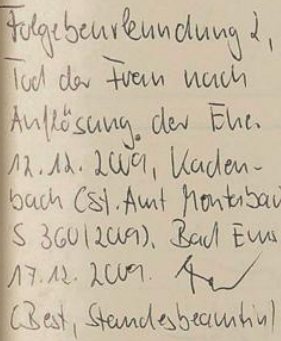 Folgebeurkundung 2,
Tod der Frau nach
Auflösung der Ehe.
12.12.2009, Kaden-
bach (St.Amt Montabau
S 360/2009). Bad Ems
17.12.2009.
(Best, Standesbeamtin)